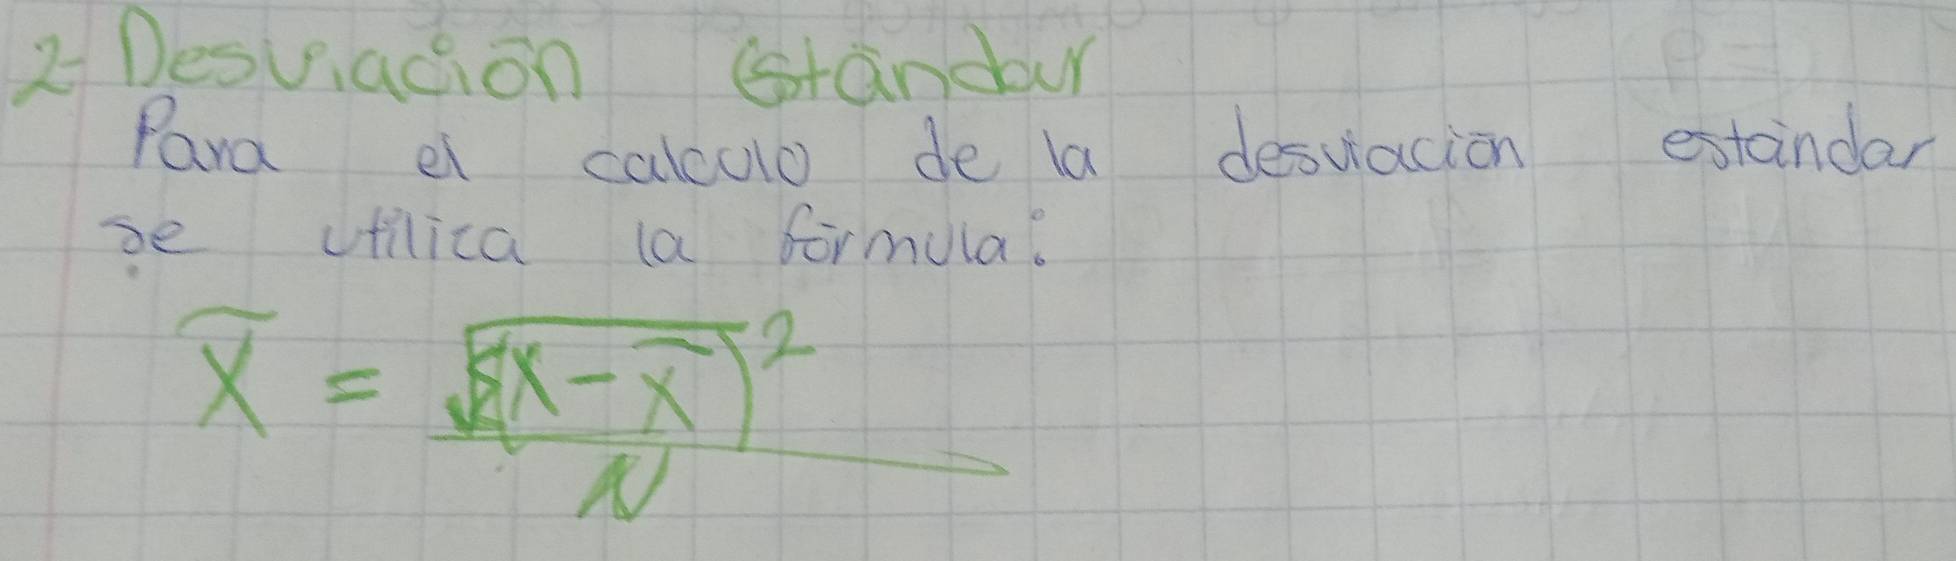 2- Desviación Estándar
Para el calculo de la desviación estándar
se utiliza la fórmula:
X̄ = √Σ(x - x̄)²
N